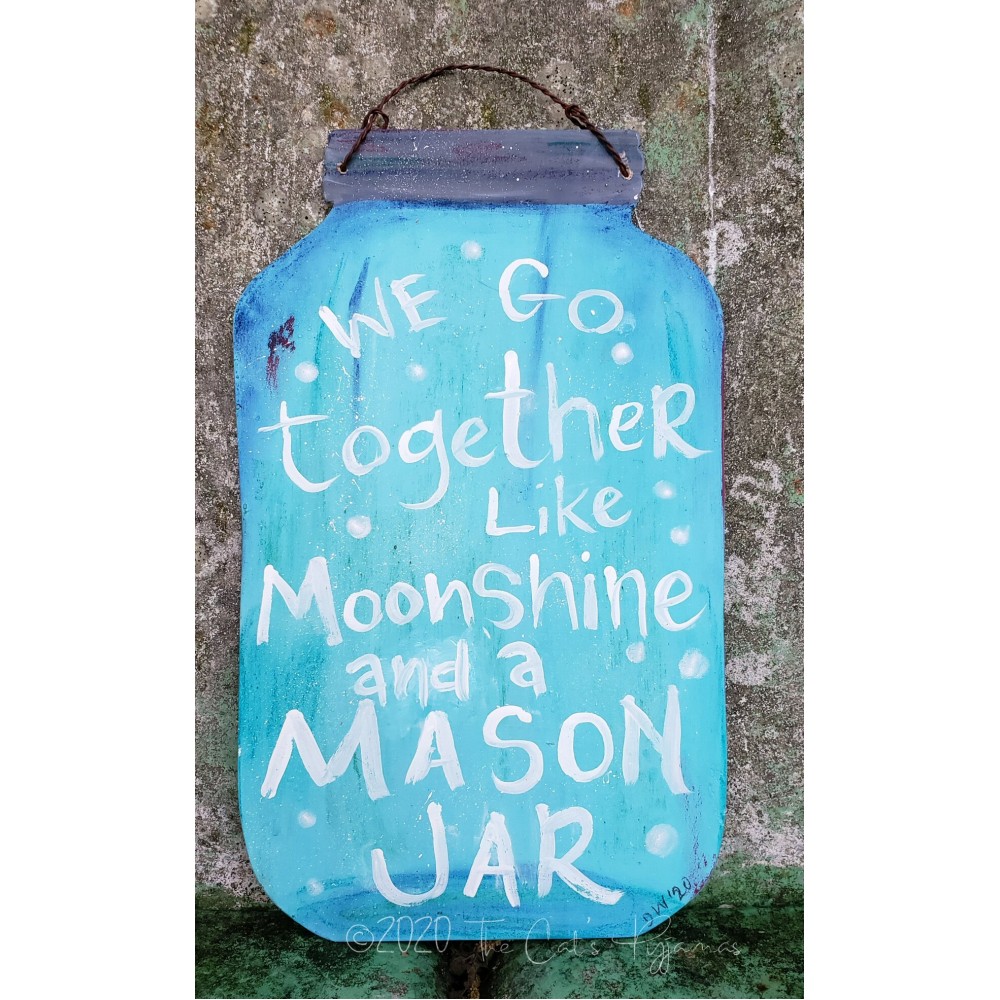 WE GO
together
Like
Moonshine
and a
MASON
JAR
DW'20
©2020 The Cat's Pyjamas